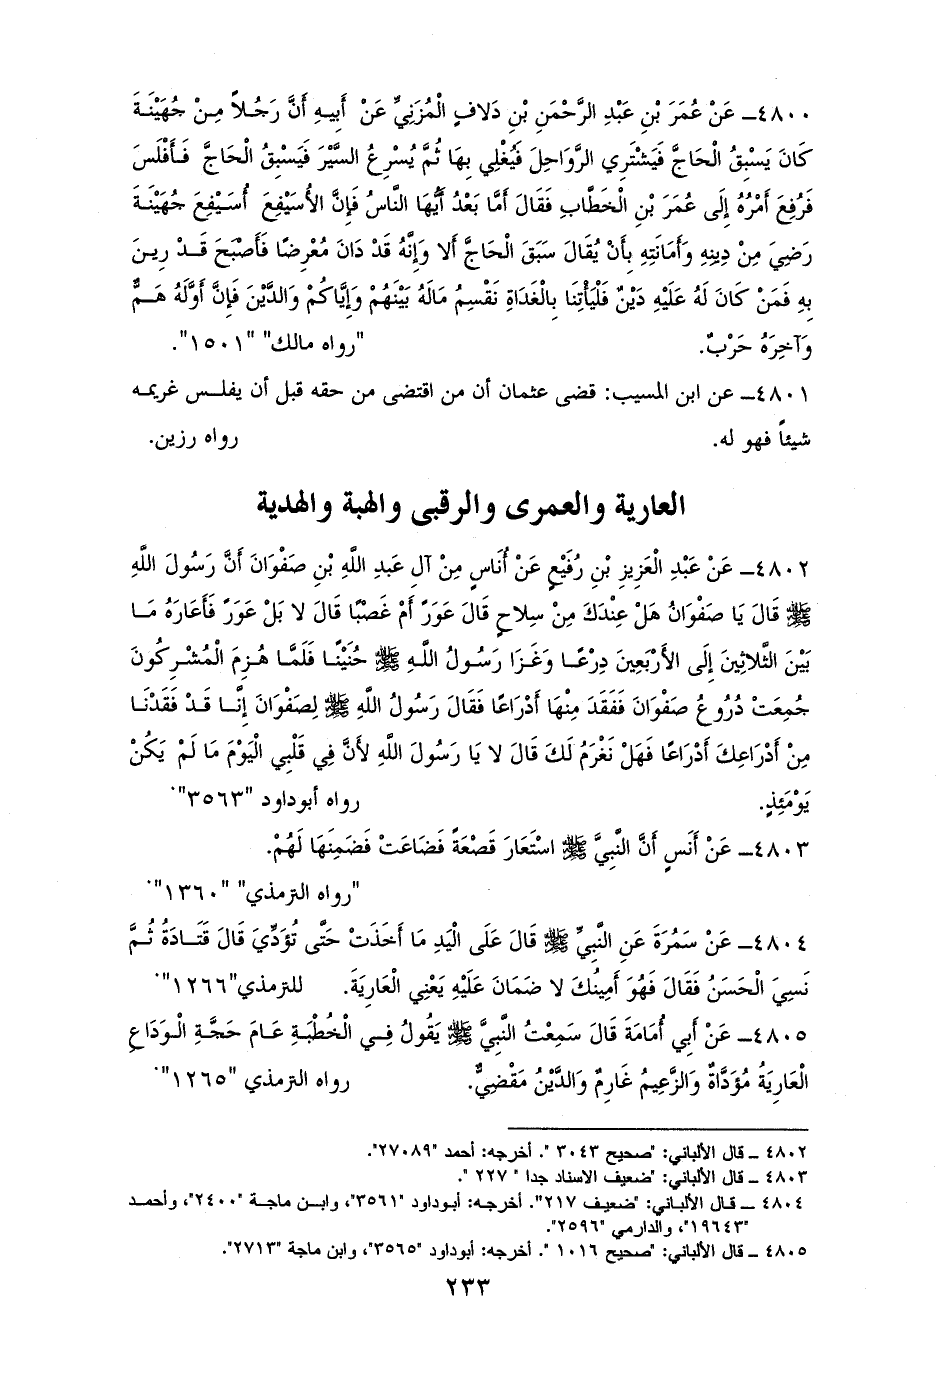 ٤٨٠٠ـ عَنْ عُمَرَ بْنِ عَبْدِ الرَّحْمَنِ بْنِ دَلافٍ الْمُزَنِيِّ عَنْ أَبِيهِ أَنَّ رَجُلاً مِنْ جُهَيْنَةَ
كَانَ يَسْبِقُ الْحَاجَّ فَيَشْتَرِي الرَّوَاحِلَ فَيُغْلِي بِهَا ثُمَّ يُسْرِعُ السَّيْرَ فَيَسْبِقُ الْحَاجَّ فَأَفْلَسَ
فَرُفِعَ أَمْرُهُ إِلَى عُمَرَ بْنِ الْخَطَّابِ فَقَالَ أَمَّا بَعْدُ أَيُّهَا النَّاسُ فَإِنَّ الأُسَيْفِعَ أُسَيْفِعَ جُهَيْنَةَ
رَضِيَ مِنْ دِينِهِ وَأَمَانَتِهِ بِأَنْ يُقَالَ سَبَقَ الْحَاجَّ أَلا وَإِنَّهُ قَدْ دَانَ مُعْرِضًا فَأَصْبَحَ قَدْ رِينَ
بِهِ فَمَنْ كَانَ لَهُ عَلَيْهِ دَيْنٌ فَلْيَأْتِنَا بِالْغَدَاةِ نَقْسِمُ مَالَهُ بَيْنَهُمْ وَإِيَّاكُمْ وَالدَّيْنَ فَإِنَّ أَوَّلَهُ هَمٌّ
وَآخِرَهُ حَرْبٌ. "رواه مالك" "١٥٠١".
٤٨٠١ـ عن ابن المسيب: قضى عثمان أن من اقتضى من حقه قبل أن يفلس غريمه
شيئاً فهو له. رواه رزين.
العارية والعمرى والرقبى والهبة والهدية
٤٨٠٢ـ عَنْ عَبْدِ الْعَزِيزِ بْنِ رُفَيْعٍ عَنْ أُنَاسٍ مِنْ آلِ عَبدِ اللَّهِ بْنِ صَفْوَانَ أَنَّ رَسُولَ اللَّهِ
ﷺ قَالَ يَا صَفْوَانُ هَلْ عِنْدَكَ مِنْ سِلاحٍ قَالَ عَوَرً أَمْ غَصْبًا قَالَ لا بَلْ عَوَرً فَأَعَارَهُ مَا
بَيْنَ الثَّلاثِينَ إِلَى الأَرْبَعِينَ دِرْعًا وَغَزَا رَسُولُ اللَّهِ ﷺ حُنَيْنًا فَلَمَّا هُزِمَ الْمُشْرِكُونَ
جُمِعَتْ دُرُوعُ صَفْوَانَ فَفَقَدَ مِنْهَا أَدْرَاعًا فَقَالَ رَسُولُ اللَّهِ ﷺ لِصَفْوَانَ إِنَّا قَدْ فَقَدْنَا
مِنْ أَدْرَاعِكَ أَدْرَاعًا فَهَلْ نَغْرَمُ لَكَ قَالَ لا يَا رَسُولَ اللَّهِ لأَنَّ فِي قَلْبِي الْيَوْمَ مَا لَمْ يَكُنْ
يَوْمَئِذٍ. رواه أبوداود "٣٥٦٣".
٤٨٠٣ـ عَنْ أَنَسٍ أَنَّ النَّبِيَّ ﷺ اسْتَعَارَ قَصْعَةً فَضَاعَتْ فَضَمِنَهَا لَهُمْ.
"رواه الترمذي" "١٣٦٠".
٤٨٠٤ـ عَنْ سَمُرَةَ عَنِ النَّبِيِّ ﷺ قَالَ عَلَى الْيَدِ مَا أَخَذَتْ حَتَّى تُؤَدِّيَ قَالَ قَتَادَةُ ثُمَّ
نَسِيَ الْحَسَنُ فَقَالَ فَهُوَ أَمِينُكَ لا ضَمَانَ عَلَيْهِ يَعْنِي الْعَارِيَةَ. للترمذي"١٢٦٦".
٤٨٠٥ـ عَنْ أَبِي أُمَامَةَ قَالَ سَمِعْتُ النَّبِيَّ ﷺ يَقُولُ فِي الْخُطْبَةِ عَامَ حَجَّةِ الْوَدَاعِ
الْعَارِيَةُ مُؤَدَّاةٌ وَالزَّعِيمُ غَارِمٌ وَالدَّيْنُ مَقْضِيٌّ. رواه الترمذي "١٢٦٥".
٤٨٠٢ ـ قال الألباني: "صحيح ٣٠٤٣ ". أخرجه: أحمد "٢٧٠٨٩".
٤٨٠٣ ـ قال الألباني: "ضعيف الاسناد جدا " ٢٢٧ ".
٤٨٠٤ ـ قال الألباني: "ضعيف ٢١٧". أخرجه: أبوداود "٣٥٦١"، وابن ماجة "٢٤٠٠"، وأحمد
"١٩٦٤٣"، والدارمي "٢٥٩٦".
٤٨٠٥ ـ قال الألباني: "صحيح ١٠١٦ ". أخرجه: أبوداود "٣٥٦٥"، وابن ماجة "٢٧١٣".
٢٣٣